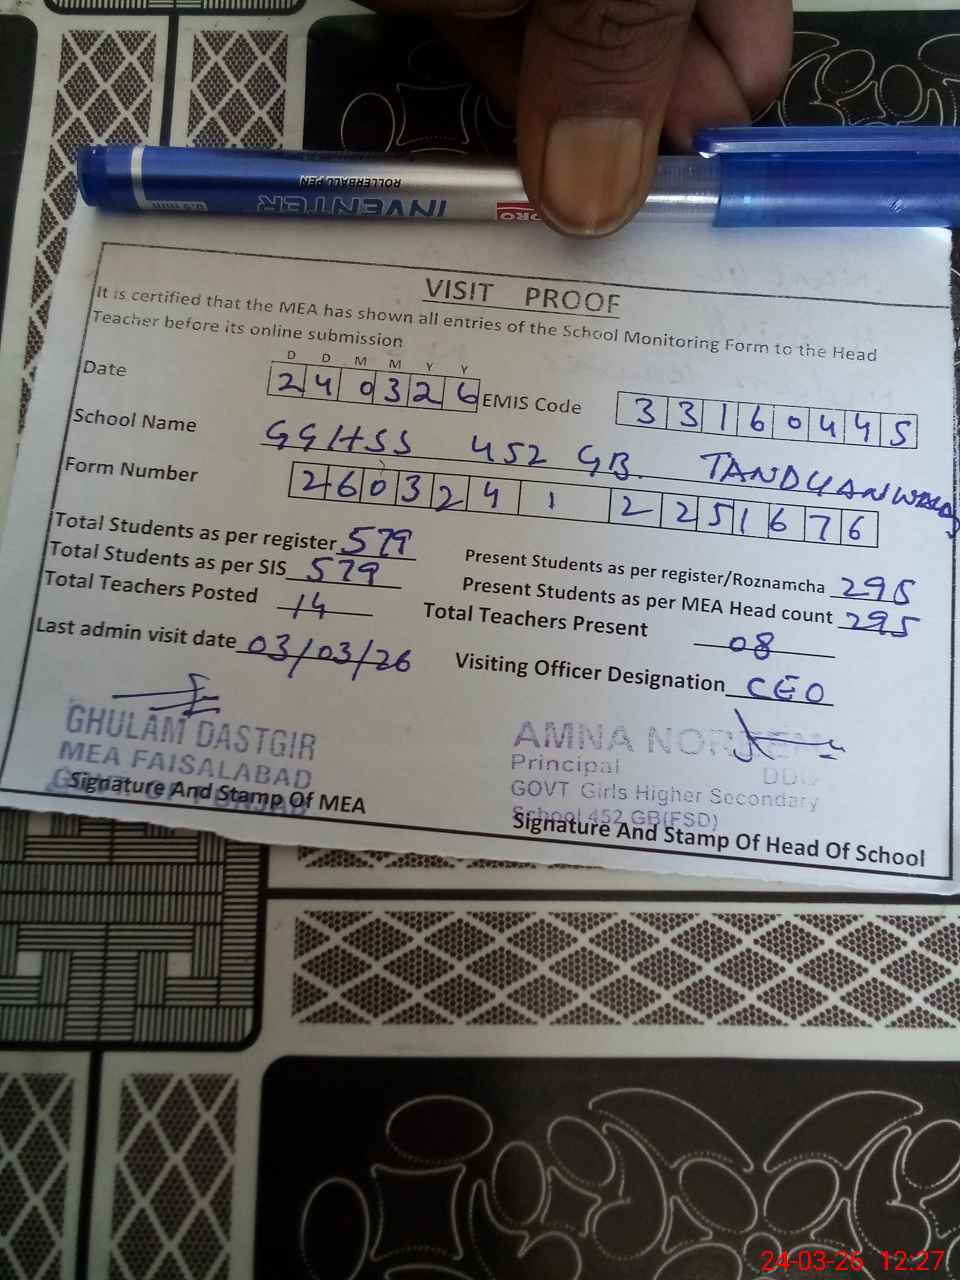 INVENTER
ROLLERBALL PEN
0.5 mm
VISIT PROOF
It is certified that the MEA has shown all entries of the School Monitoring Form to the Head
Teacher before its online submission
D D M M Y Y
Date 240326 EMIS Code 33160445
School Name GGHSS 452 GB. TANDLIANWALA
Form Number 2603241 2251676
Total Students as per register 579
Present Students as per register/Roznamcha 295
Total Students as per SIS 579
Present Students as per MEA Head count 295
Total Teachers Posted 14
Total Teachers Present 08
Last admin visit date 03/03/26
Visiting Officer Designation CEO
GHULAM DASTGIR
MEA FAISALABAD
Signature And Stamp Of MEA
AMNA
Principal DDO
GOVT Girls Higher Secondary
School 452 GB(FSD)
Signature And Stamp Of Head Of School
24-03-26 12:27